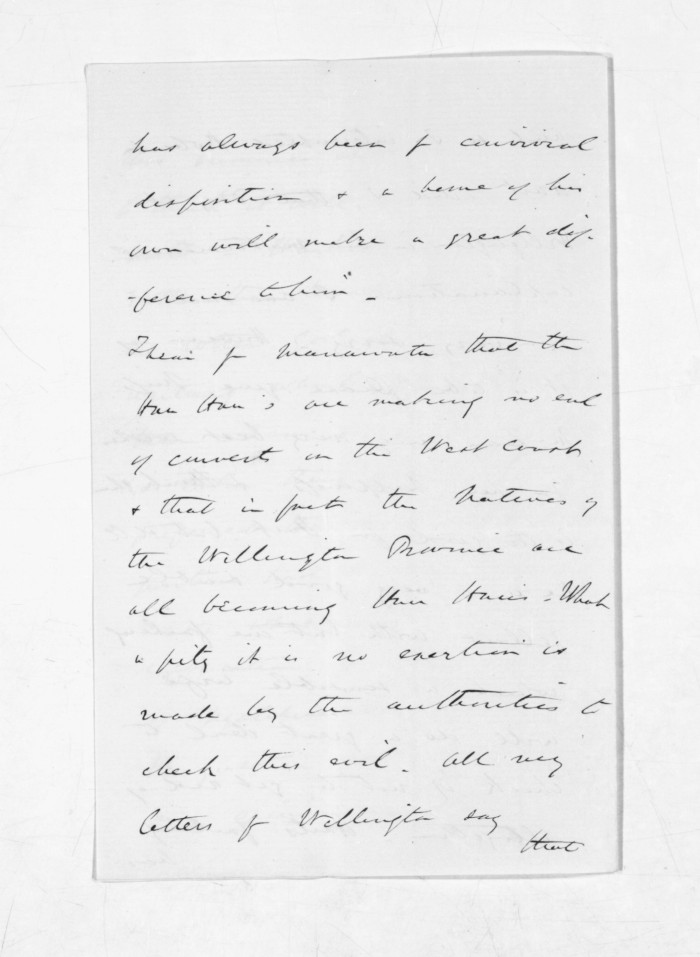 has always been of convivial
disposition & a home of his
own will make a great dif-
-ference to him" -
I hear fr Manawatu that the
Hau Hau's are making no end
of converts on the West Coast
& that in fact the Natives of
the Wellington Province are
all becoming Hau Haus - What
a pity it is no exertion is
made by the authorities to
check this evil - All my
letters fr Wellington say
that